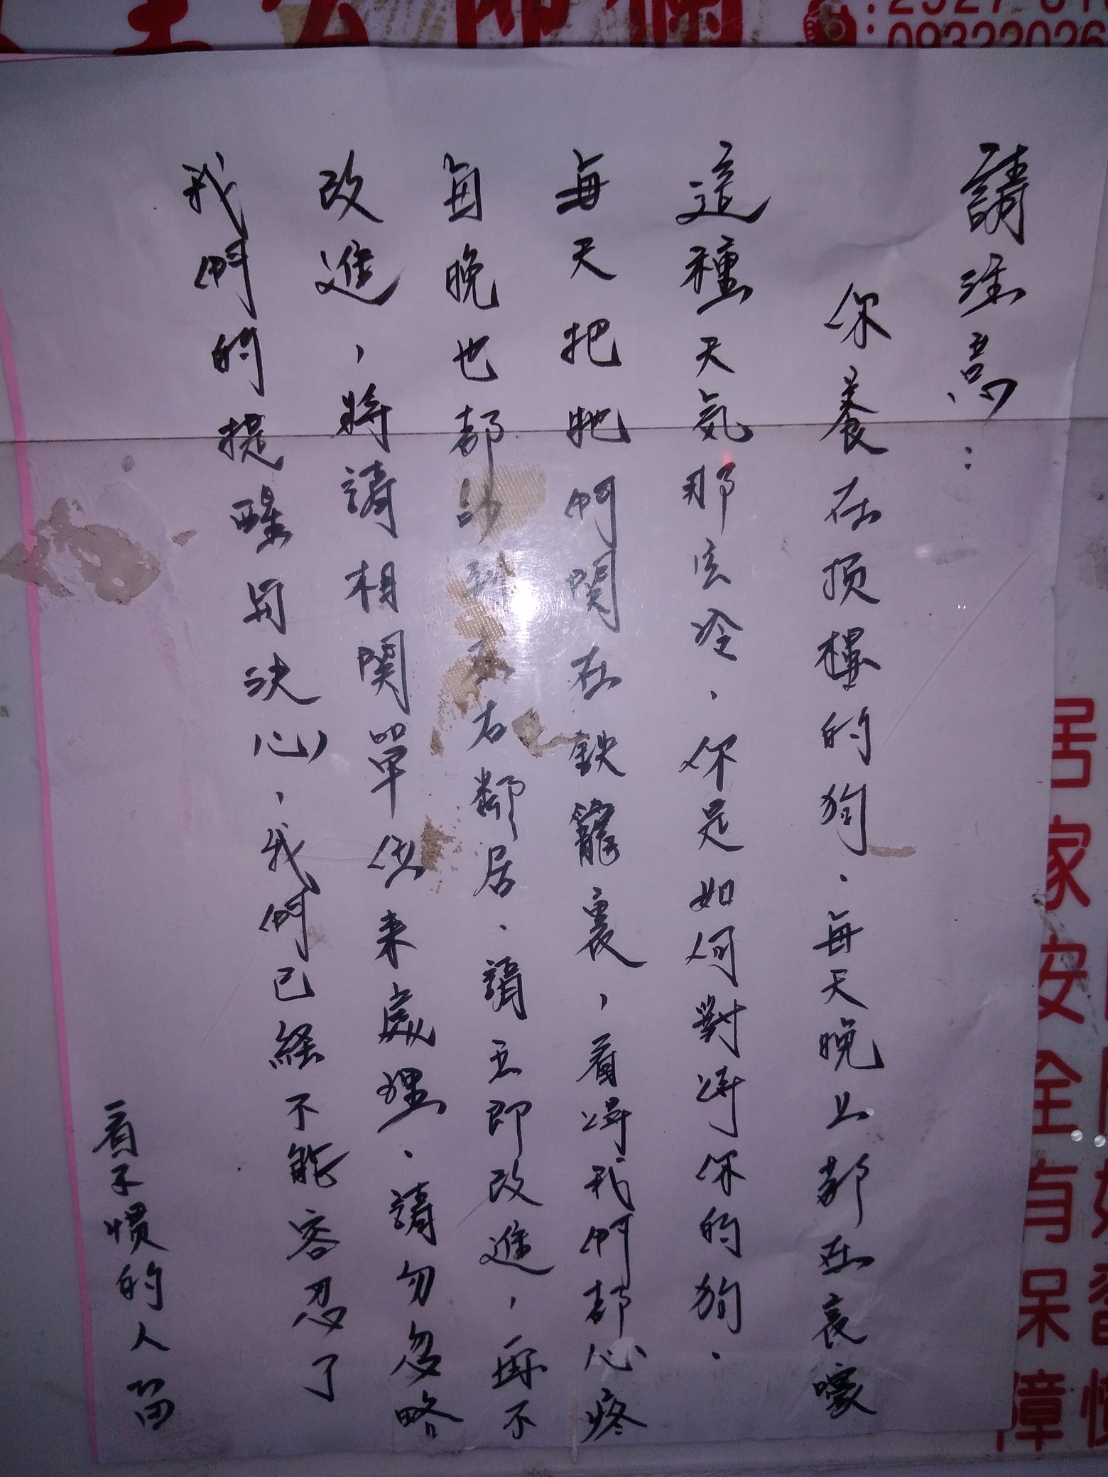 請注意：
你養在頂樓的狗、每天晚上都在哀嚎
這種天氣那么冷、你是如何對待你的狗、
每天把牠們関在鉄籠裏，看得我們都心疼
每晚也都吵到左右鄰居、請立即改進，再不
改進，將請相関單位来處理、請勿忽略
我們的提醒與決心、我們已経不能容忍了
看不慣的人留
居家安全有保障